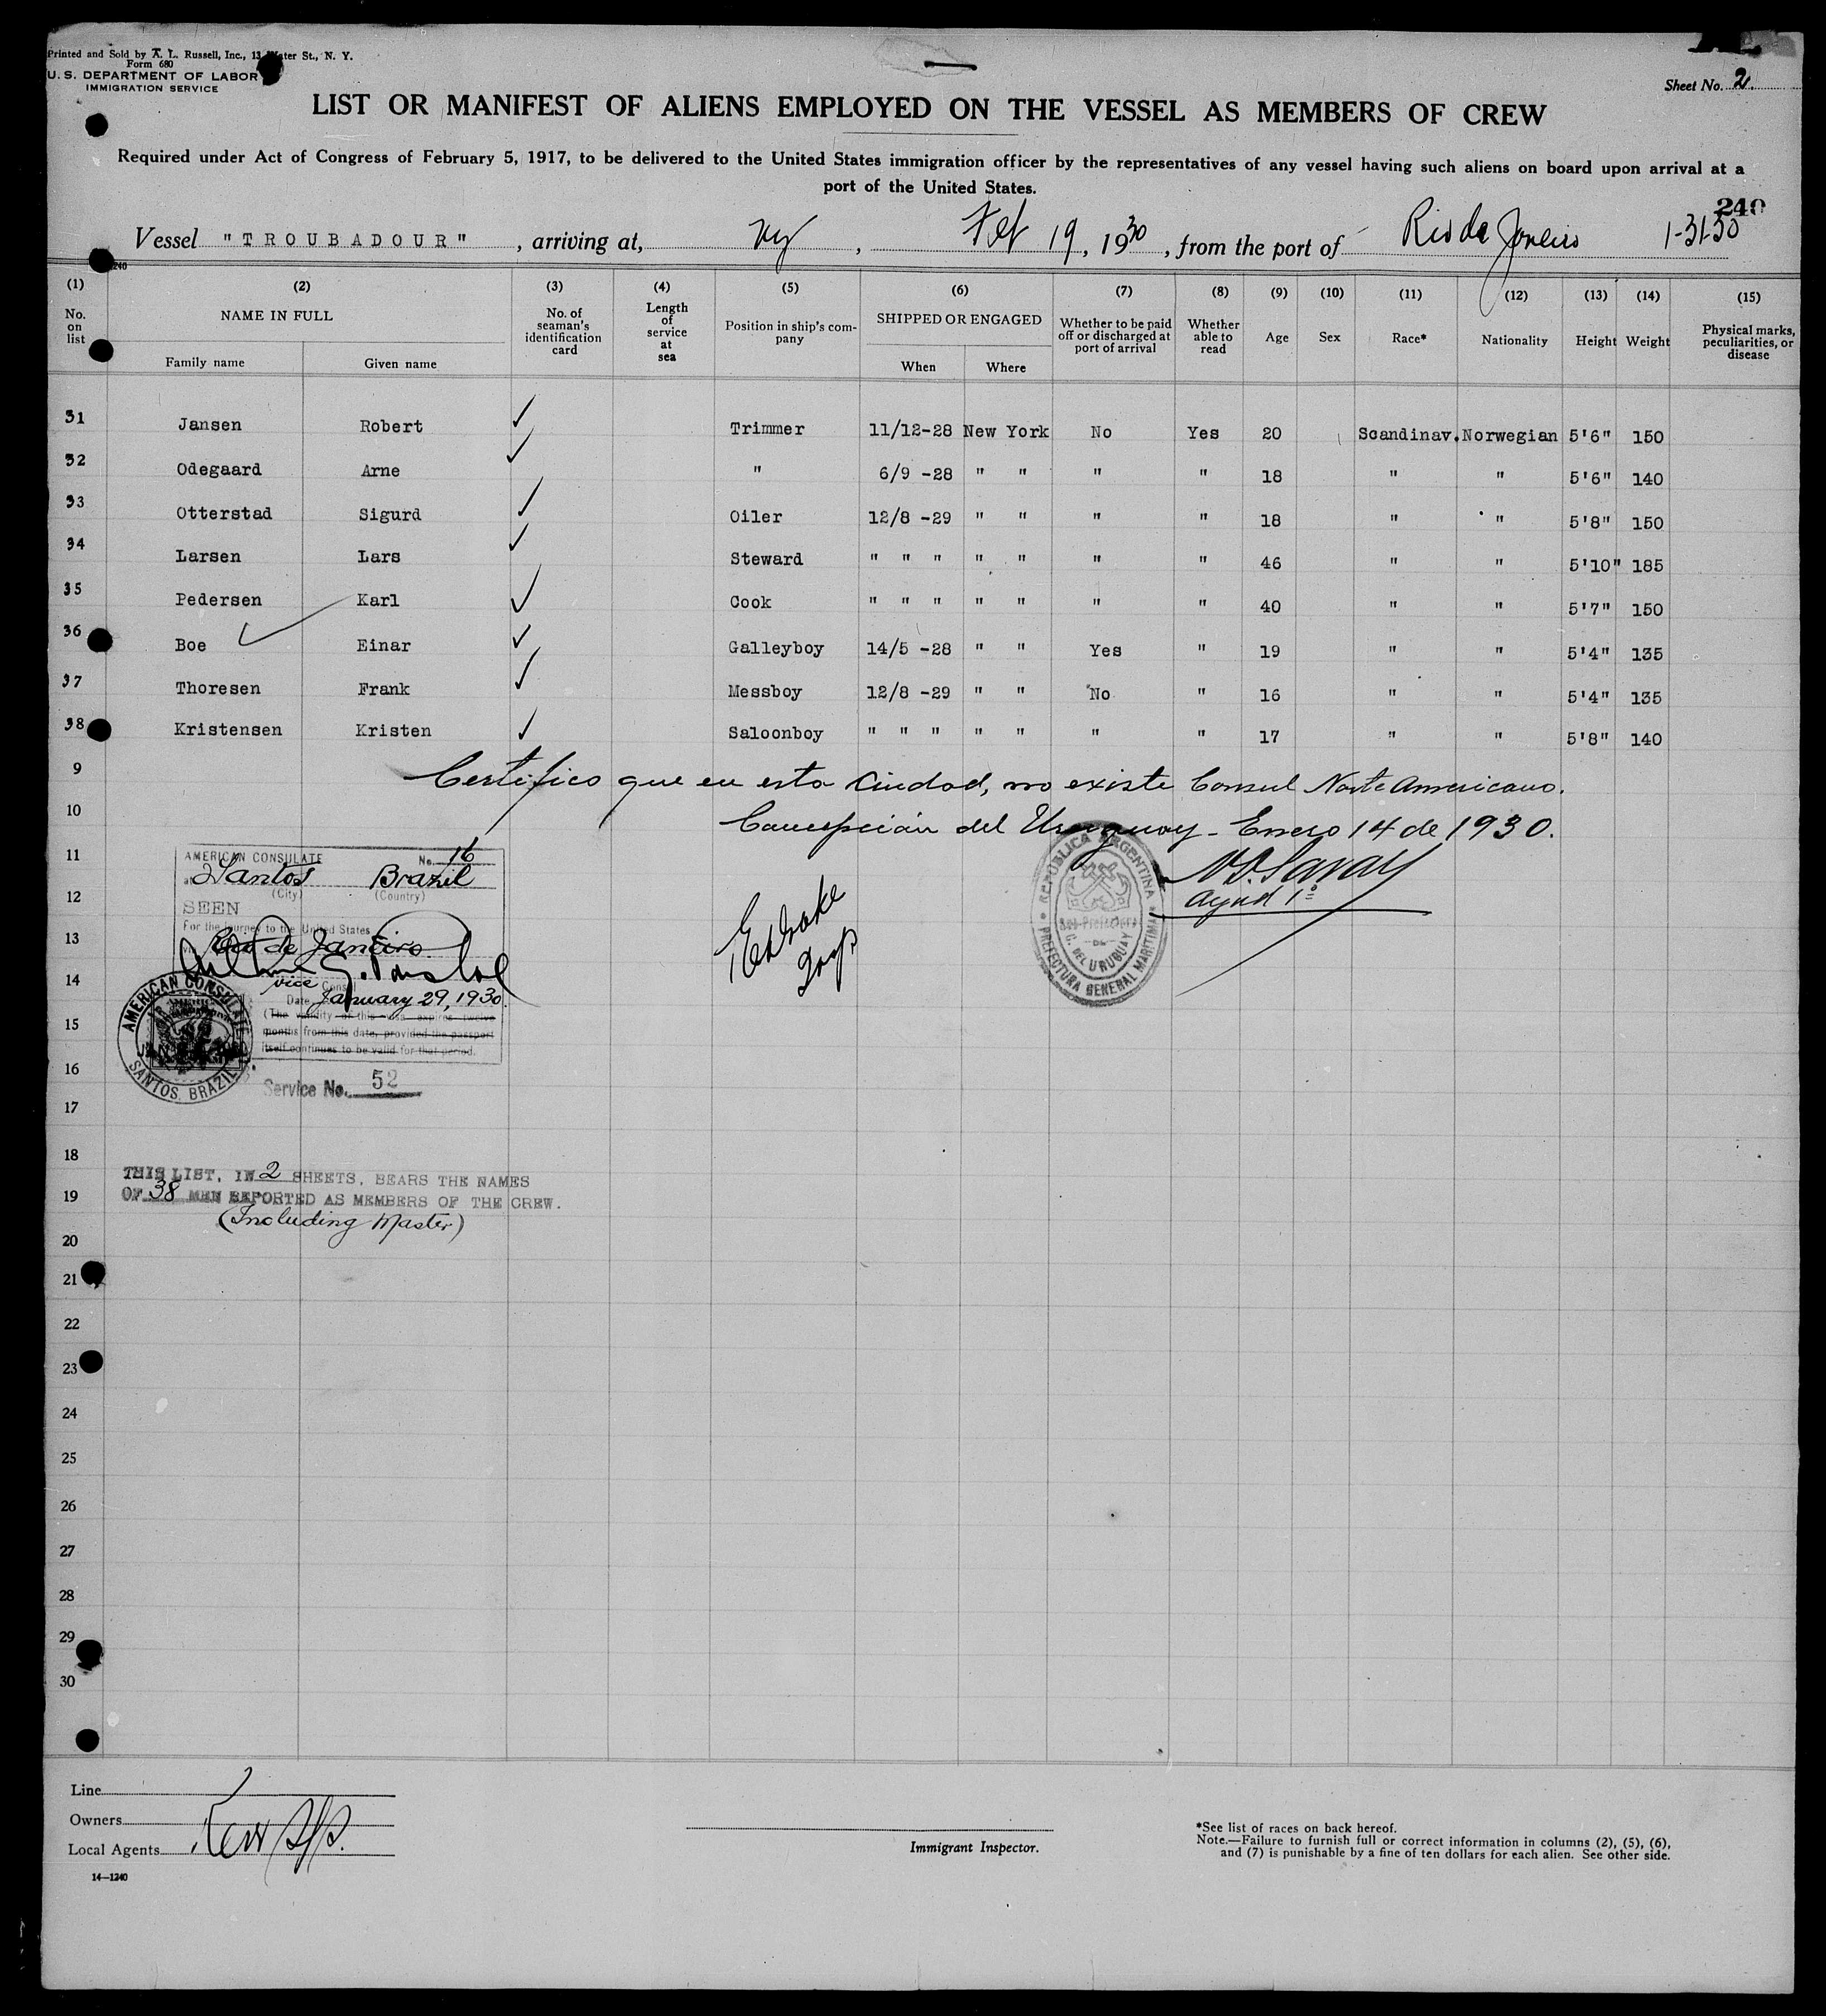 Printed and Sold by A. L. Russell, Inc., 13 Water St., N. Y.
Form 680
U. S. DEPARTMENT OF LABOR
IMMIGRATION SERVICE
Sheet No. 2
LIST OR MANIFEST OF ALIENS EMPLOYED ON THE VESSEL AS MEMBERS OF CREW
Required under Act of Congress of February 5, 1917, to be delivered to the United States immigration officer by the representatives of any vessel having such aliens on board upon arrival at a
port of the United States.
240
Vessel "TROUBADOUR", arriving at, NY, Feb 19, 1930, from the port of Rio de Janeiro 1-31-30
(1) (2) (3) (4) (5) (6) (7) (8) (9) (10) (11) (12) (13) (14) (15)
No. on list NAME IN FULL Family name Given name No. of seaman's identification card Length of service at sea Position in ship's company SHIPPED OR ENGAGED When Where Whether to be paid off or discharged at port of arrival Whether able to read Age Sex Race* Nationality Height Weight Physical marks, peculiarities, or disease
31 Jansen Robert ✓ Trimmer 11/12-28 New York No Yes 20 Scandinav. Norwegian 5'6" 150
32 Odegaard Arne ✓ " 6/9 -28 " " " " 18 " " 5'6" 140
33 Otterstad Sigurd ✓ Oiler 12/8 -29 " " " " 18 " " 5'8" 150
34 Larsen Lars ✓ Steward " " " " " " " 46 " " 5'10" 185
35 Pedersen Karl ✓ Cook " " " " " " " 40 " " 5'7" 150
36 Boe ✓ Einar ✓ Galleyboy 14/5 -28 " " Yes " 19 " " 5'4" 135
37 Thoresen Frank ✓ Messboy 12/8 -29 " " No " 16 " " 5'4" 135
38 Kristensen Kristen ✓ Saloonboy " " " " " " " 17 " " 5'8" 140
9 Certifico que en esta Ciudad, no existe Consul Norte Americano.
10 Concepción del Uruguay - Enero 14 de 1930.
11
AMERICAN CONSULATE No. 16
Santos Brazil
(City) (Country)
12
SEEN
For the journey to the United States
13
via Rio de Janeiro
14
Vice Consul
Date January 29, 1930.
15
(The validity of this visa expires twelve
months from this date, provided the passport
itself continues to be valid for that period.
16
AMERICAN CONSULATE
SANTOS, BRAZIL
Service No. 52
REPUBLICA ARGENTINA
Sub-Prefectura
DE
C. DEL URUGUAY
PREFECTURA GENERAL MARITIMA
Ayud 1º
17
18
THIS LIST, IN 2 SHEETS, BEARS THE NAMES
19
OF 38 MEN REPORTED AS MEMBERS OF THE CREW.
(Including Master)
20
21
22
23
24
25
26
27
28
29
30
Line
Owners
Local Agents Kerr S/S.
14—1240
Immigrant Inspector.
*See list of races on back hereof.
Note.—Failure to furnish full or correct information in columns (2), (5), (6),
and (7) is punishable by a fine of ten dollars for each alien. See other side.